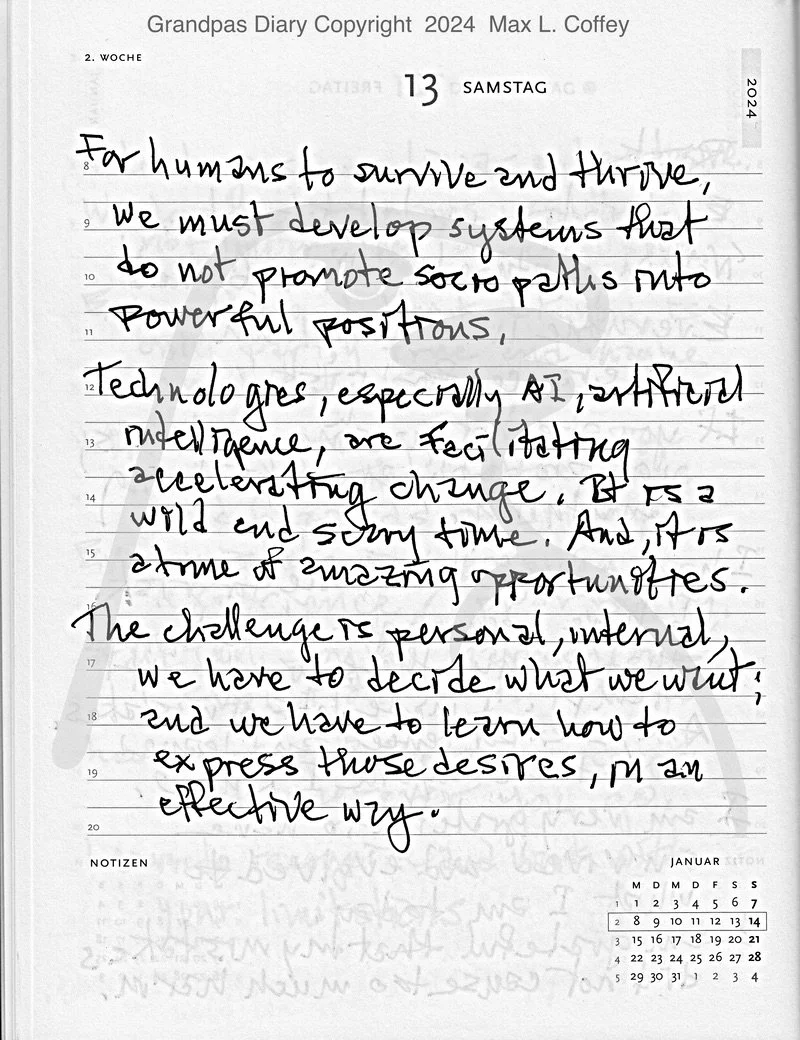 Grandpas Diary Copyright 2024 Max L. Coffey
2. WOCHE
13 SAMSTAG
2024
8 For humans to survive and thrive,
9 we must develop systems that
10 do not promote socio paths into
11 powerful positions,
12 Technologies, especially AI, artificial
13 intelligence, are facilitating
14 accelerating change. It is a
wild and scary time. And, it is
15 a time of amazing opportunities.
16 The challenge is personal, internal,
17 we have to decide what we want;
18 and we have to learn how to
express those desires, in an
19 effective way.
20
NOTIZEN
JANUAR
M D M D F S S
1 1 2 3 4 5 6 7
2 8 9 10 11 12 13 14
3 15 16 17 18 19 20 21
4 22 23 24 25 26 27 28
5 29 30 31 1 2 3 4